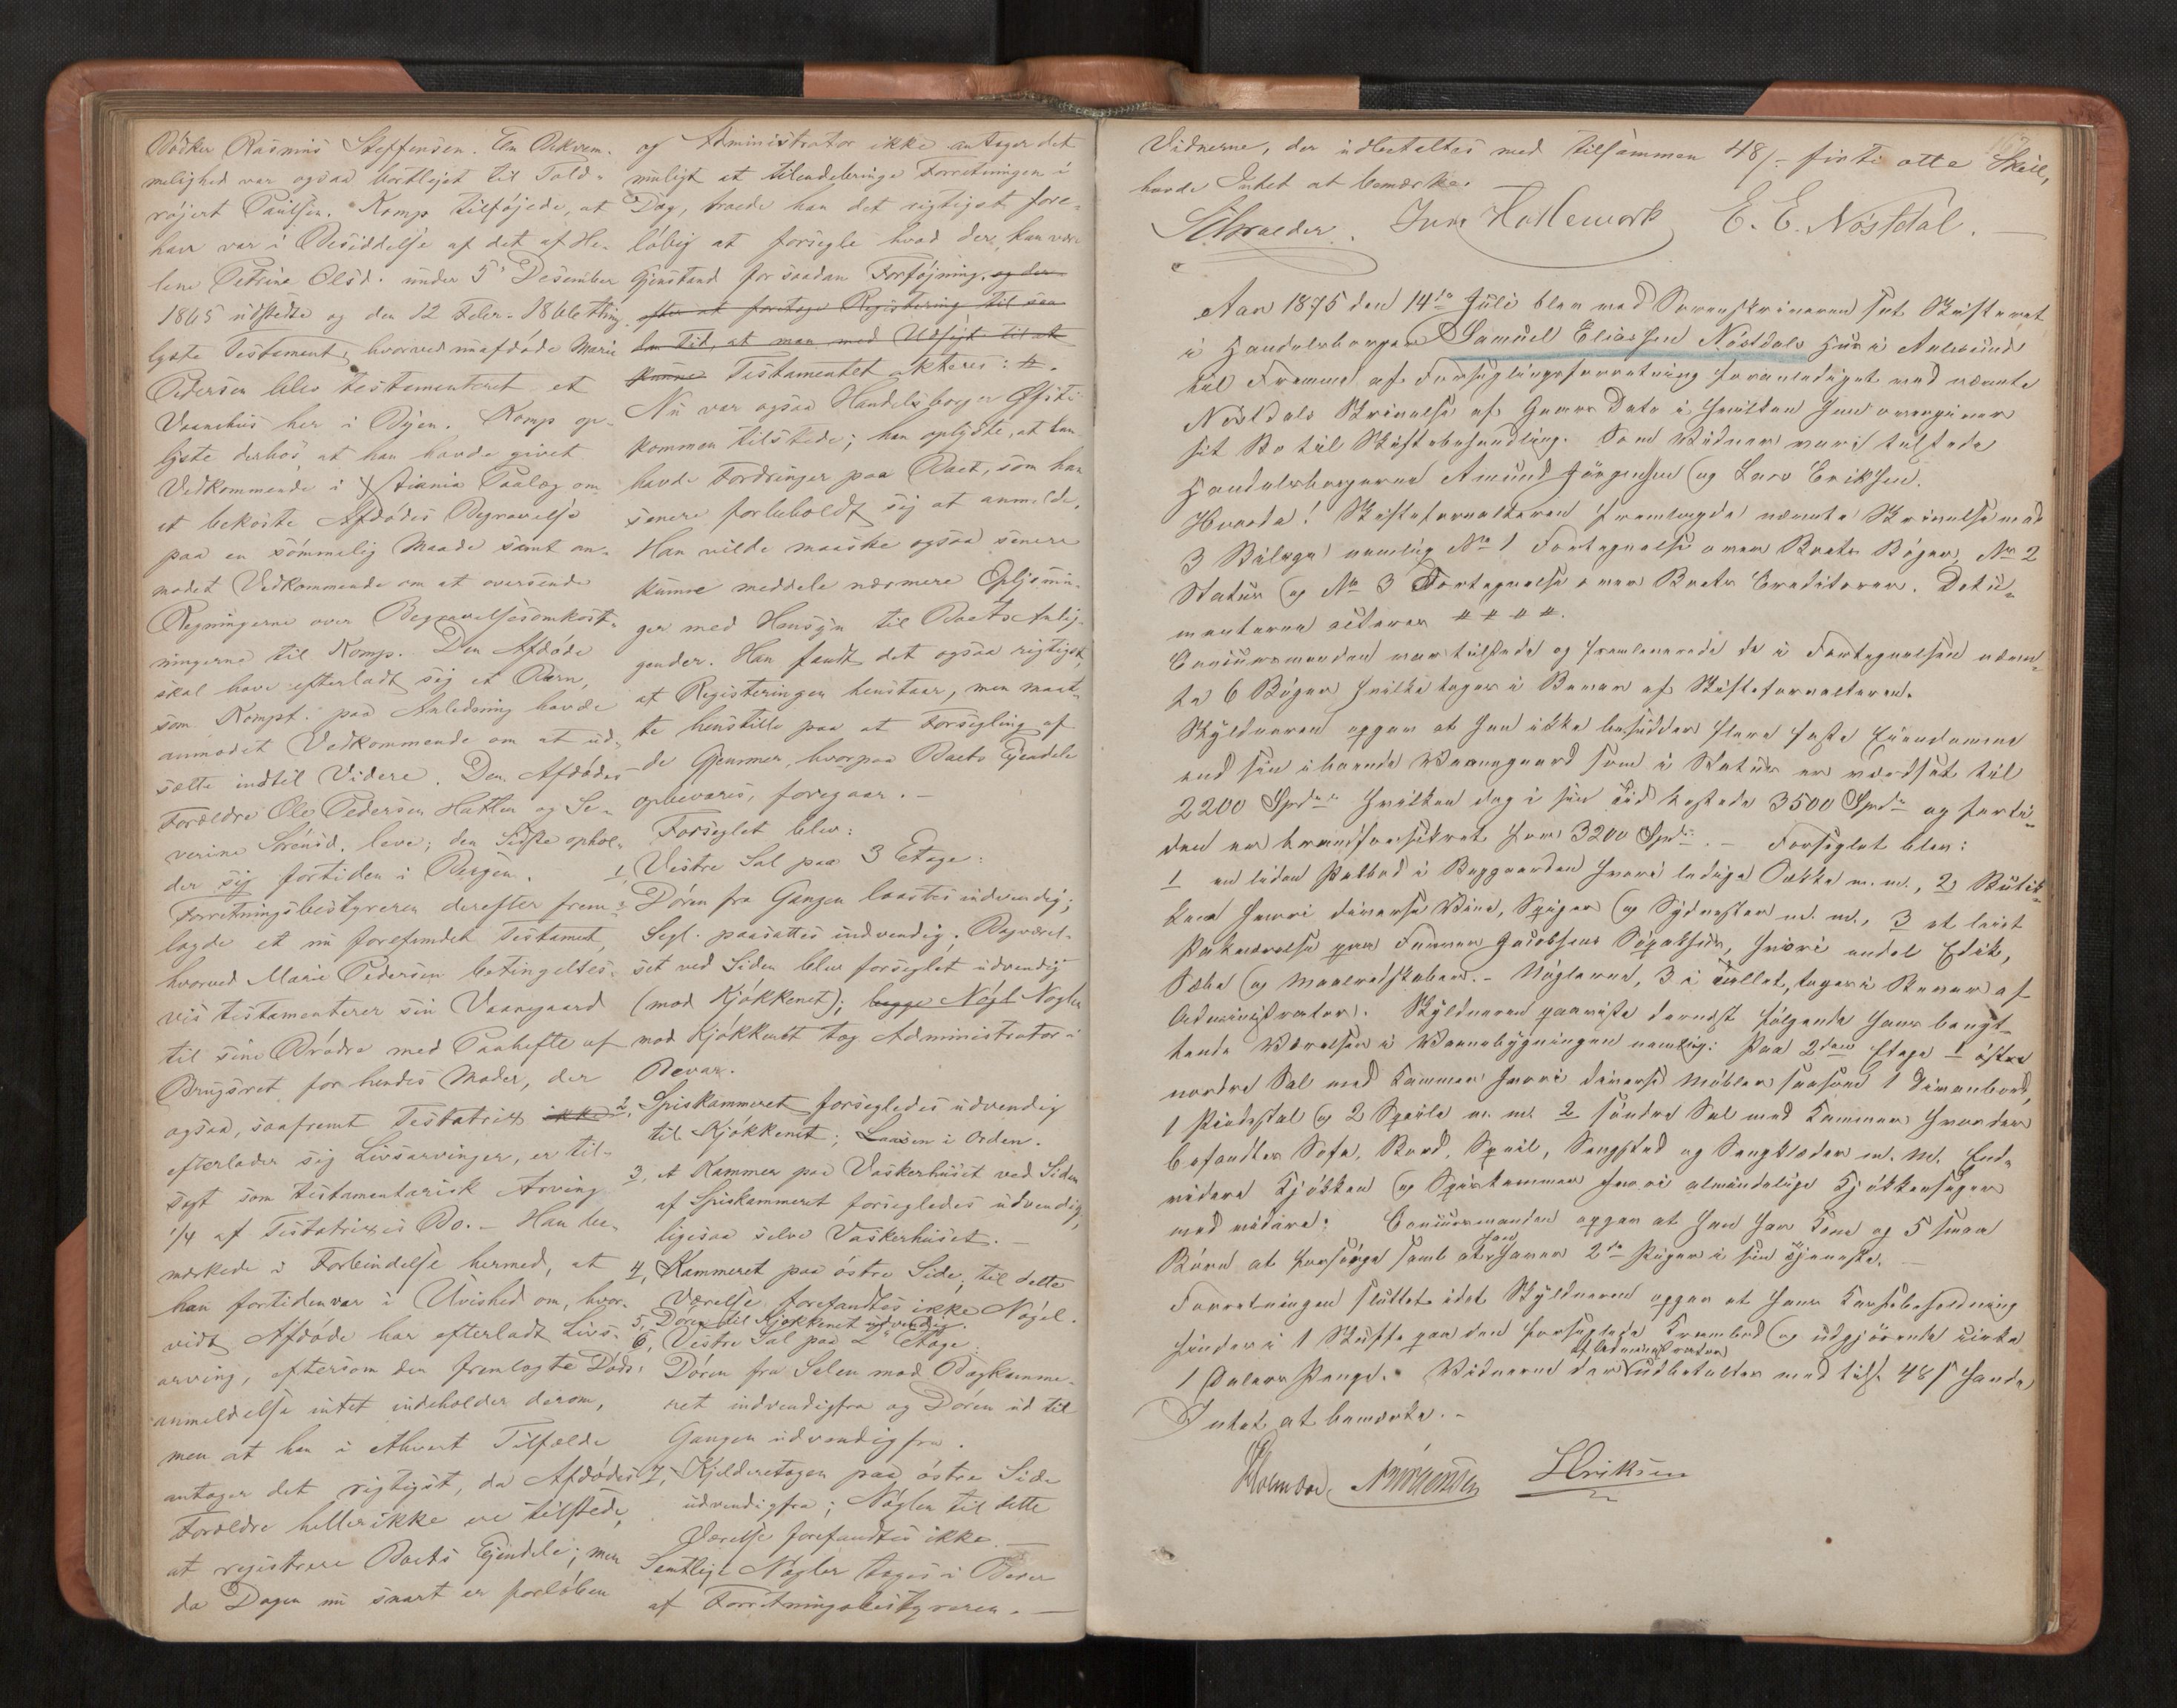 Bödker Rasmus Steffensen. En Bekvem-
melighed var ogsaa bortlejet til Told-
röjert Paulsen. Komp tilföjede, at
han var i Besiddelse af det af He-
lene Petrine Olsd. under 5' Desember
1865 udstedte og den 12 Febr. 1866 thing-
lyste Testament, hvorved nuafdöde Marie
Pedersen blev testamenteret et
Vaanehus her i Byen. Komp op-
lyste derhos, at han havde givet
Vedkommende i Xtiania Paalæg om
at bekoste Afdödes Begravelse
paa en sömmelig Maade samt an-
modet Vedkommende om at oversende
Regningerne over Begravelsesomkost-
ningerne til Komp. Den Afdöde
skal have efterladt sig et Barn,
som Kompt. paa Anledning havde
anmodet Vedkommende om at ud-
sætte indtil Videre. Den Afdödes
Forældre Ole Pedersen Hatlen og Se-
verine Sörensd. leve; den Sidste ophol-
der sig fortiden i Bergen.
Forretningsbestyreren derefter frem-
lagde et nu forefundet Testament,
hvorved Marie Pedersen betingelses-
vis testamenterer sin Vaanegaard
til sine Brödre med Paahefte af
Brugsret for hendes Moder, der
ogsaa, saafremt Testatrix ikke
efterlader sig Livsarvinger, er til-
sagt som testamentarisk Arving
1/4 af Testatrixes Bo. – Han be-
mærkede i Forbindelse hermed, at
han fortiden var i Uvished om, hvor-
vidt Afdöde har efterladt Livs-
arving, eftersom den fremlagte Döds-
anmeldelse intet indeholder derom,
men at han i ethvert Tilfælde
antager det rigtigst, da Afdödes
Forældre heller ikke ere tilstede,
at registrere Boets Ejendele; men
da Dagen nu snart er forlöben
og Administrator ikke antager det
muligt at tilendebringe Forretningen i
Dag, troede han det rigtigst fore-
löbig at forsegle hvad der kan være
Gjenstand for saadan Forföjning, og der-
efter at foretage Registrering til saa-
dan Tid, at man med Udsigt til at
kunne Testamentet akteres: #.
Nu var ogsaa Handelsborger
kommen tilstede; han oplyste, at han
havde Fordringer paa Boet, som han
senere forbeholdt sig at anmelde.
Han vilde maaske ogsaa senere
kunne meddele nærmere Oplysnin-
ger med Hensyn til Boets Anlig-
gender. Han fandt det ogsaa rigtigst,
at Registeringen henstaar, men maat-
te henstille paa at Forsegling af
de Gjemmer, hvorpaa Boets Ejendele
opbevares, foregaar. –
Forseglet blev:
1, Vestre Sal paa 3 Etage:
Dören fra Gangen laastes indvendig;
Segl. paasattes indvendig. Bagværel-
set ved Siden blev forseglet udvendig
(mod Kjökkenet); begge Nögl Nöglen
mod Kjökkenet tog Administrator i
Bevar.
2, Spiskammeret forsegledes udvendig
til Kjökkenet; Laasen i Orden.
3, et Kammer paa Vaskerhuset ved Siden
af Spiskammeret forsegledes udvendig,
ligesaa selve Vaskerhuset. –
4, Kammeret paa östre Side; til dette
Værelse forefandtes ikke Nögel.
5, Dören til Kjökkenet udvendig.
6, Vestre Sal paa 2' Etage:
Dören fra Salen mod Bagkamme-
ret indvendigfra og Dören ud til
Gangen udvendigfra.
7, Kjelderetagen paa östre Side
udvendigfra; Nöglen til dette
Værelse forefandtes ikke. –
Samtlige Nögler toges i Bevar
af Forretningsbestyreren. –
Vidnerne, der udbetaltes med tilsammen 48 /- firti otte Skill,
havde Intet at bemærke.
Schroeder. Hatlemark E. E. Nöstdal. –
Aar 1875 den 14de Juli blev ved Sorenskriveren sat Skifteret
i Handelsborger Samuel Eliassen Nöstdals Hus i Aalesund
til Fremme af Forseglingsforretning foranlediget ved nævnte
Nöstdals Skrivelse af Gaars Dato i hvilken han overgiver
sit Bo til Skiftebehandling. Som Vidner vare tilstede
Handelsborgerne Amund Jörgensen og Lars Eriksen.
Hvorda! Skifteforvalteren fremlagde nævnte Skrivelse med
3 Bilage nemlig No 1 Fortegnelse over Boets Böger, No 2
Status og No 3 Fortegnelse over Boets Creditorer. Docu-
menterne acteres # # # #.
Concursmanden var tilstede og fremleverede de i Fortegnelsen nævn-
te 6 Böger hvilke toges i Bevar af Skifteforvalteren.
Skyldneren opgav at han ikke besidder flere faste Eiendomme
end sin iboende Vaanegaard som i Status er værdsat til
2200 Spdr hvilken dog i sin Tid kostede 3500 Spdr og forti-
den er brandforsikret for 3200 Spdr. – Forseglet blev:
1 en liden Pakbod i Baggaarden hvori ledige Sække m. m., 2 Butik-
ken hvori diverse Vine, Spiger og Sydvester m. m., 3 et leiet
Pakværelse paa Jacobsens Söpakhus, hvori endel Edik,
Sæbe og Maaleredskaber. – Nöglerne, 3 i Tallet, toges i Bevar af
Administrator. Skyldneren paaviste dernæst fölgende hans bengt-
tende Værelser i Vaanebygningen nemlig: Paa 2den Etage 1 östre
nordre Sal med Kammer hvori diverse Möbler saasom 1 Divanbord,
1 Piedestal og 2 Speile m. m. 2 söndre Sal med Kammer hvor der
befandtes Sofa, Bord, Speil, Sengsted og Sengklæder m. m. End-
videre Kjökken og Spiskammer hvori almindelige Kjökkensager
med videre. Concursmanden opgav at han har Kone og 5 smaa
Börn at forsörge samt at han haver 2de Piger i sin Tjeneste. –
Forretningen sluttet idet Skyldneren opgav at hans Kassebeholdning
findes i 1 Skuffe paa den forseglede Krambod og udgjörende cirka
1 Dalers Penge. Vidnerne der af Administrator udbetaltes med tils. 48 /- havde
Intet at bemærke. –
AJörgensen LEriksen